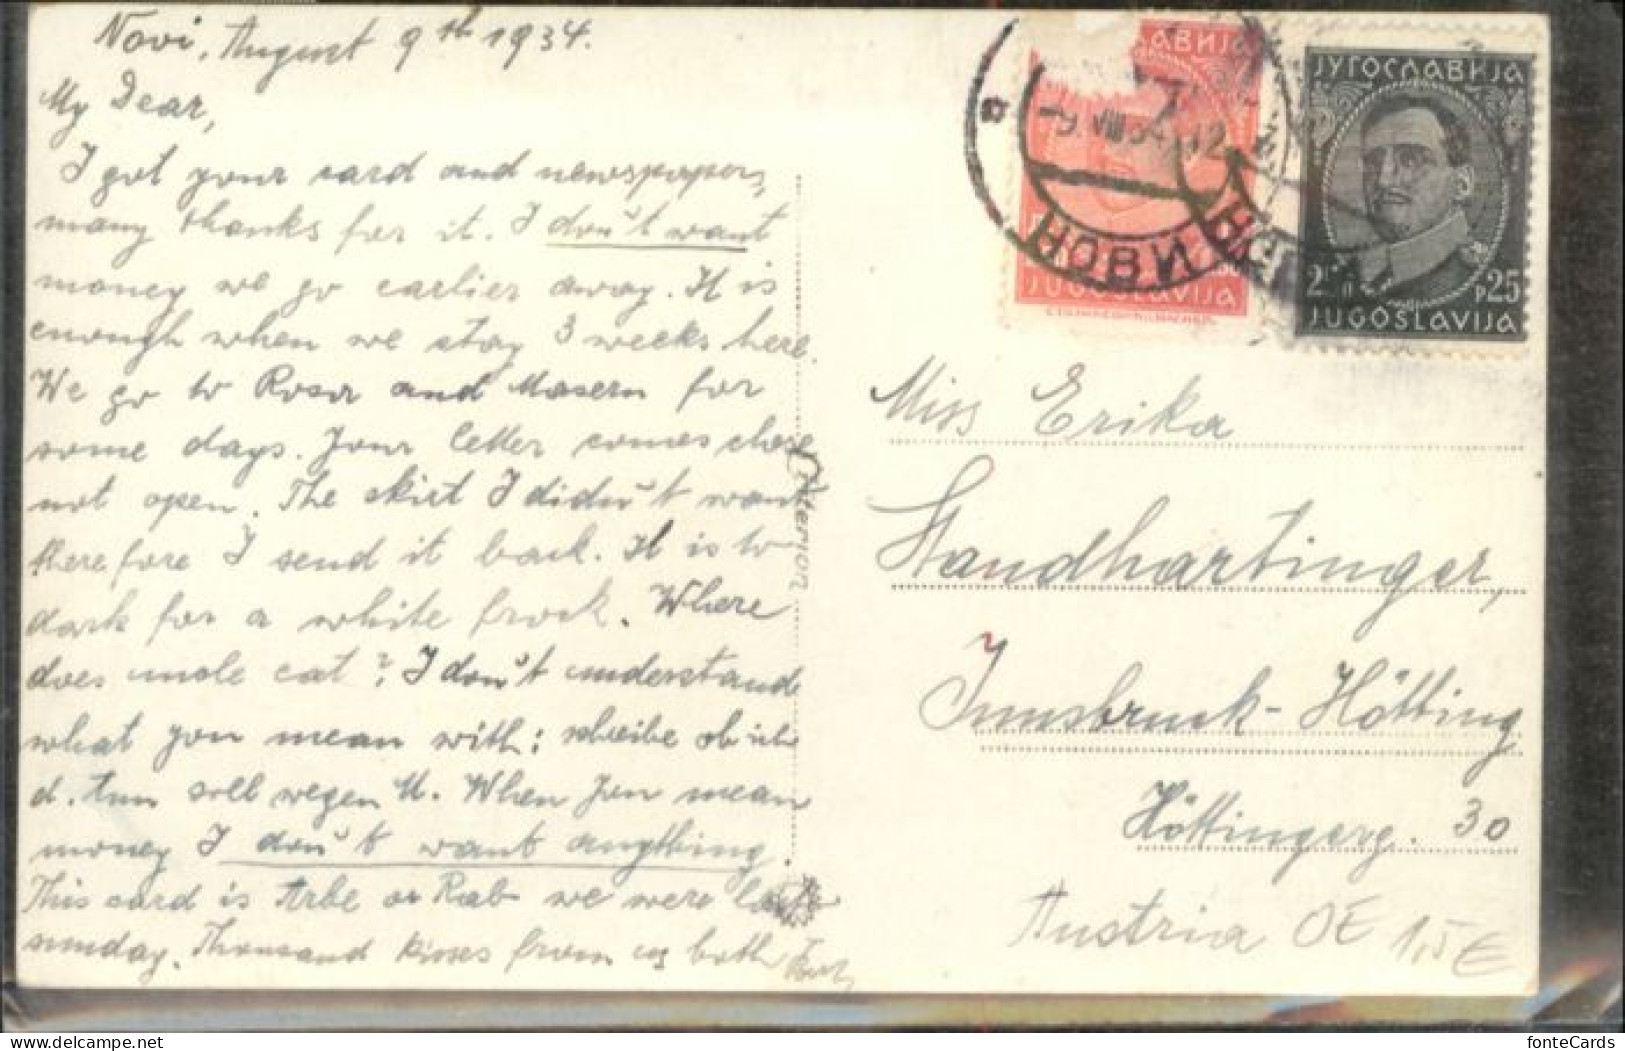 Novi, August 9th 1934.
My Dear,
I got your card and newspapers,
many thanks for it. I don't want
money we go earlier away. It is
enough when we stay 3 weeks here.
We go to Rosa and Masern for
some days. Your letter comes
not open. The skirt I didn't want
therefore I send it back. It is to
dark for a white frock. Where
does mole eat? I don't understand
what you mean with: schreibe ob ich
d. tun soll wegen U. When You mean
money I don't want anything.
This card is Arbe or Rab we were last
sunday. Thousand kisses from us both
ЈУГОСЛАВИЈА
P25
JUGOSLAVIJA
АВИЈА
JUGOSLAVIJA
-9.VIII.34-12
НОВИ
Miss Erika
Standhartinger,
Innsbruck-Hötting
Höttingerg. 30
Austria OE 1,5€
www.delcampe.net
fonteCards